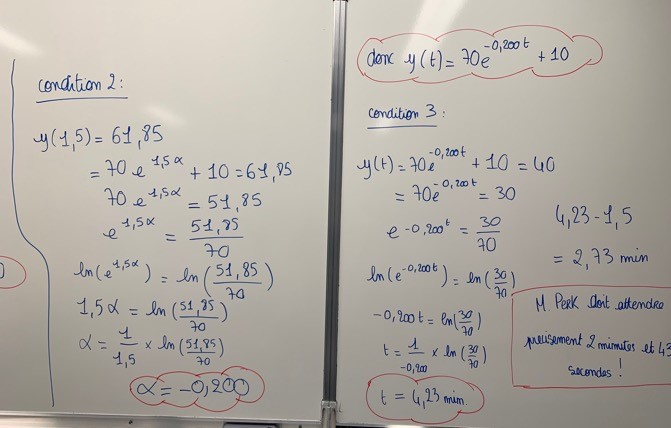 condition 2:
y(1,5) = 61,85
= 70 e^{1,5α} + 10 = 61,85
70 e^{1,5α} = 51,85
e^{1,5α} = 51,85/70
ln(e^{1,5α}) = ln(51,85/70)
1,5α = ln(51,85/70)
α = 1/1,5 × ln(51,85/70)
α = -0,200
donc y(t) = 70e^{-0,200t} + 10
condition 3 :
y(t) = 70e^{-0,200t} + 10 = 40
= 70e^{-0,200t} = 30
e^{-0,200t} = 30/70
ln(e^{-0,200t}) = ln(30/70)
-0,200t = ln(30/70)
t = 1/-0,200 × ln(30/70)
t = 4,23 min
4,23 - 1,5
= 2,73 min
M. Perk doit attendre
precisement 2 minutes et 43
secondes !